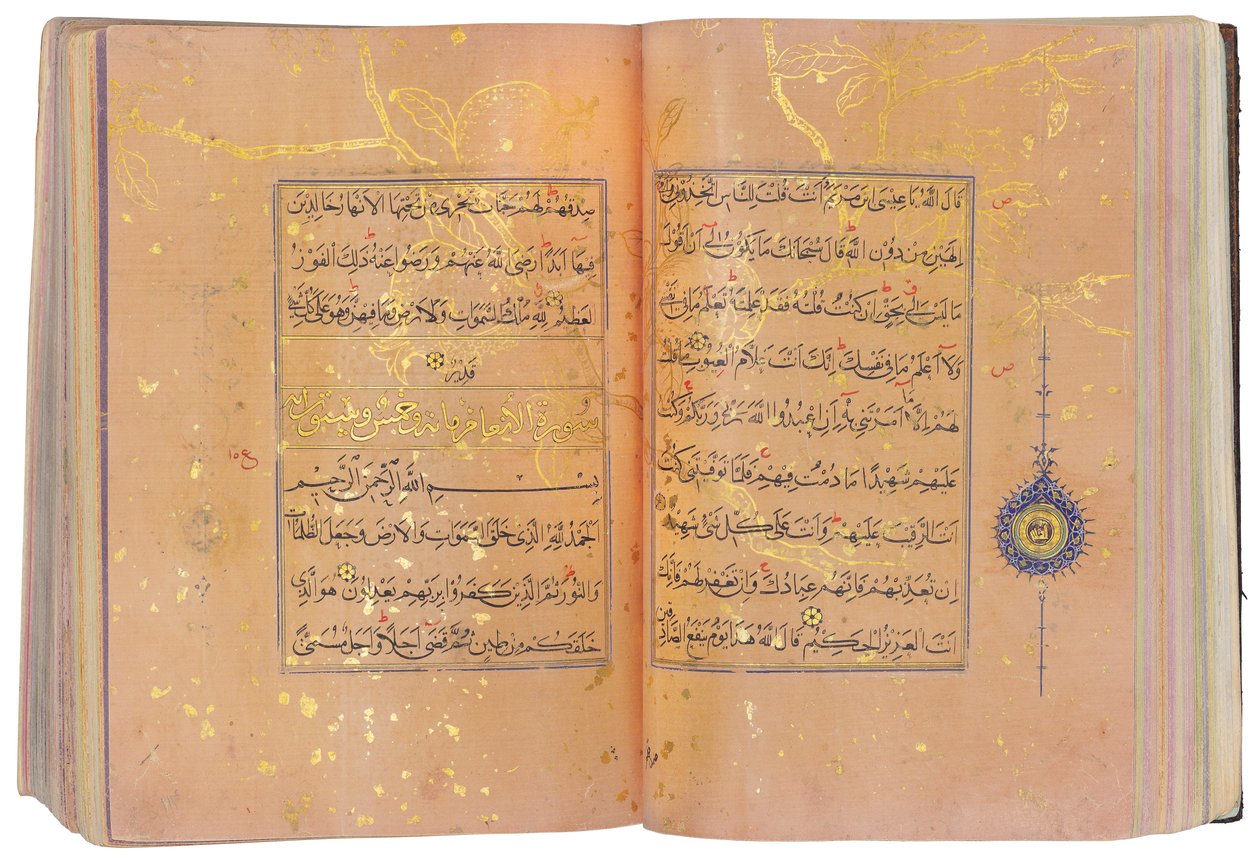 قَالَ اللَّهُ يَا عِيسَى ابْنَ مَرْيَمَ أَنْتَ قُلْتَ لِلنَّاسِ اتَّخِذُونِي وَأُمِّيَ
إِلٰهَيْنِ مِنْ دُوْنِ اللَّهِ قَالَ سُبْحَانَكَ مَا يَكُونُ لِي أَنْ أَقُولَ
مَا لَيْسَ لِي بِحَقٍّ إِنْ كُنْتُ قُلْتُهُ فَقَدْ عَلِمْتَهُ تَعْلَمُ مَا فِي نَفْسِي
وَلَا أَعْلَمُ مَا فِي نَفْسِكَ إِنَّكَ أَنْتَ عَلَّامُ الْغُيُوبِ مَا قُلْتُ
لَهُمْ إِلَّا مَا أَمَرْتَنِي بِهِ أَنِ اعْبُدُوا اللَّهَ رَبِّي وَرَبَّكُمْ وَكُنْتُ
عَلَيْهِمْ شَهِيدًا مَا دُمْتُ فِيْهِمْ فَلَمَّا تَوَفَّيْتَنِي كُنْتَ
أَنْتَ الرَّقِيْبَ عَلَيْهِمْ وَأَنْتَ عَلَى كُلِّ شَيْءٍ شَهِيْدٌ
إِنْ تُعَذِّبْهُمْ فَإِنَّهُمْ عِبَادُكَ وَإِنْ تَغْفِرْ لَهُمْ فَإِنَّكَ
أَنْتَ الْعَزِيزُ الْحَكِيْمُ قَالَ اللَّهُ هَذَا يَوْمُ يَنْفَعُ الصَّادِقِينَ
صِدْقُهُمْ لَهُمْ جَنَّاتٌ تَجْرِي مِنْ تَحْتِهَا الْأَنْهَارُ خَالِدِيْنَ
فِيْهَا أَبَدًا رَضِيَ اللَّهُ عَنْهُمْ وَرَضُوا عَنْهُ ذَلِكَ الْفَوْزُ
الْعَظِيْمُ لِلَّهِ مُلْكُ السَّمَوَاتِ وَالْأَرْضِ وَمَا فِيْهِنَّ وَهُوَ عَلَى كُلِّ شَيْءٍ
قَدِيْرٌ
سُورَةُ الْأَنْعَامِ مِائَةٌ وَخَمْسٌ وَسِتُّونَ آيَةً
بِسْمِ اللَّهِ الرَّحْمٰنِ الرَّحِيْمِ
الْحَمْدُ لِلَّهِ الَّذِي خَلَقَ السَّمَوَاتِ وَالْأَرْضَ وَجَعَلَ الظُّلُمَاتِ
وَالنُّورَ ثُمَّ الَّذِيْنَ كَفَرُوا بِرَبِّهِمْ يَعْدِلُوْنَ هُوَ الَّذِي
خَلَقَكُمْ مِنْ طِيْنٍ ثُمَّ قَضَى أَجَلًا وَأَجَلٌ مُسَمًّى